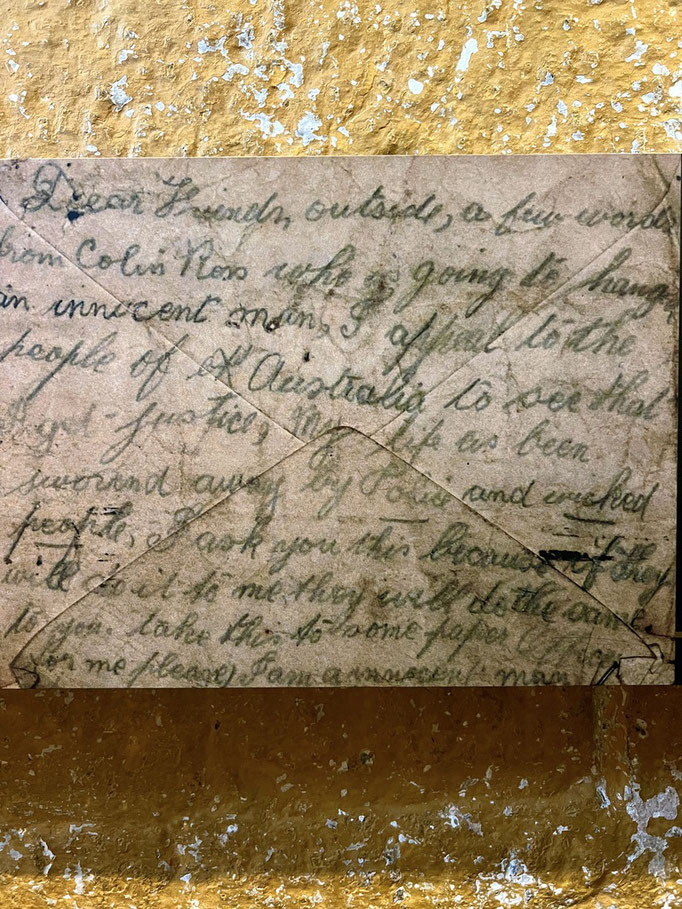 Dear Friends, outside, a few words
from Colin Ross who is going to hang,
an innocent man, I appeal to the
people of Australia to see that
I get justice, My life as been
sworind away by Police and wicked
people, I ask you this because if they
will do it to me, they will do the same
to you. take this to some paper Office
for me please, I am a innocent man